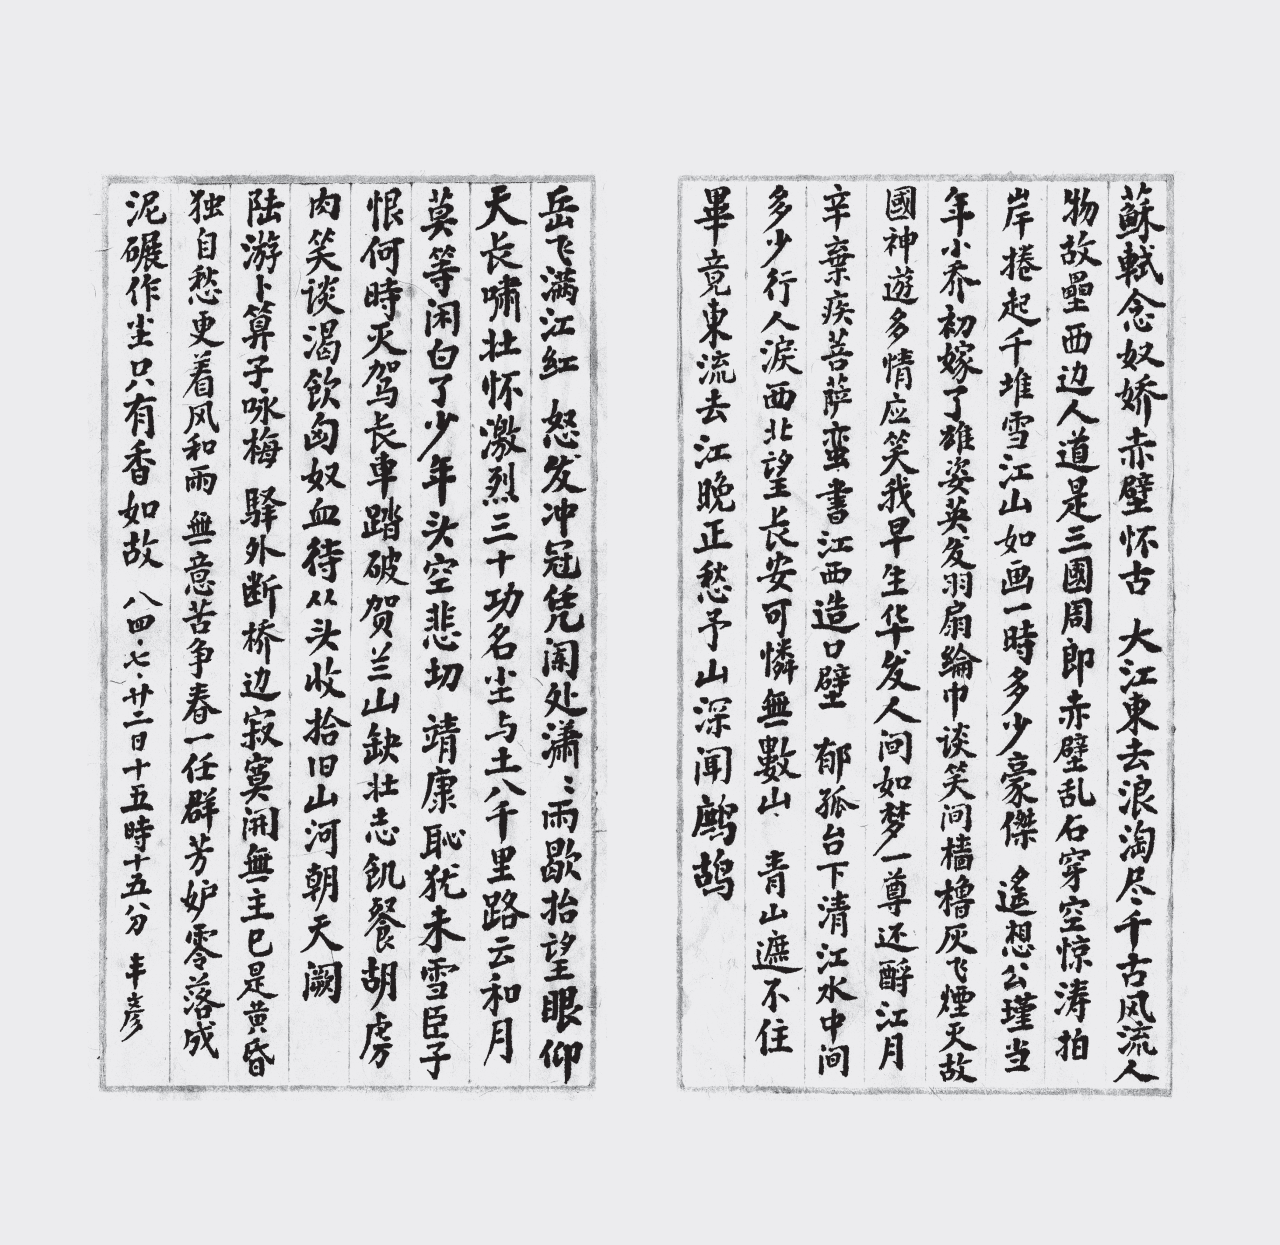 蘇軾念奴娇赤壁怀古 大江東去浪淘尽千古风流人
物故壘西边人道是三國周郎赤壁乱石穿空惊涛拍
岸捲起千堆雪江山如画一時多少豪傑 遙想公瑾当
年小乔初嫁了雄姿英发羽扇綸巾谈笑间樯櫓灰飞煙灭故
國神遊多情应笑我早生华发人间如梦一尊还酹江月
辛棄疾菩萨蛮書江西造口壁 郁孤台下清江水中间
多少行人淚西北望长安可憐無數山 青山遮不住
畢竟東流去江晚正愁予山深闻鹧鸪
岳飞满江红 怒发冲冠凭阑处潇〻雨歇抬望眼仰
天长啸壮怀激烈三十功名尘与土八千里路云和月
莫等闲白了少年头空悲切 靖康恥犹未雪臣子
恨何時灭驾长車踏破贺兰山缺壮志飢餐胡虏
肉笑谈渴飲匈奴血待从头收拾旧山河朝天阙
陆游卜算子咏梅 驿外断桥边寂寞開無主已是黄昏
独自愁更着风和雨 無意苦争春一任群芳妒零落成
泥碾作尘只有香如故 八四·七·廿二日十五時十五分 丰彦